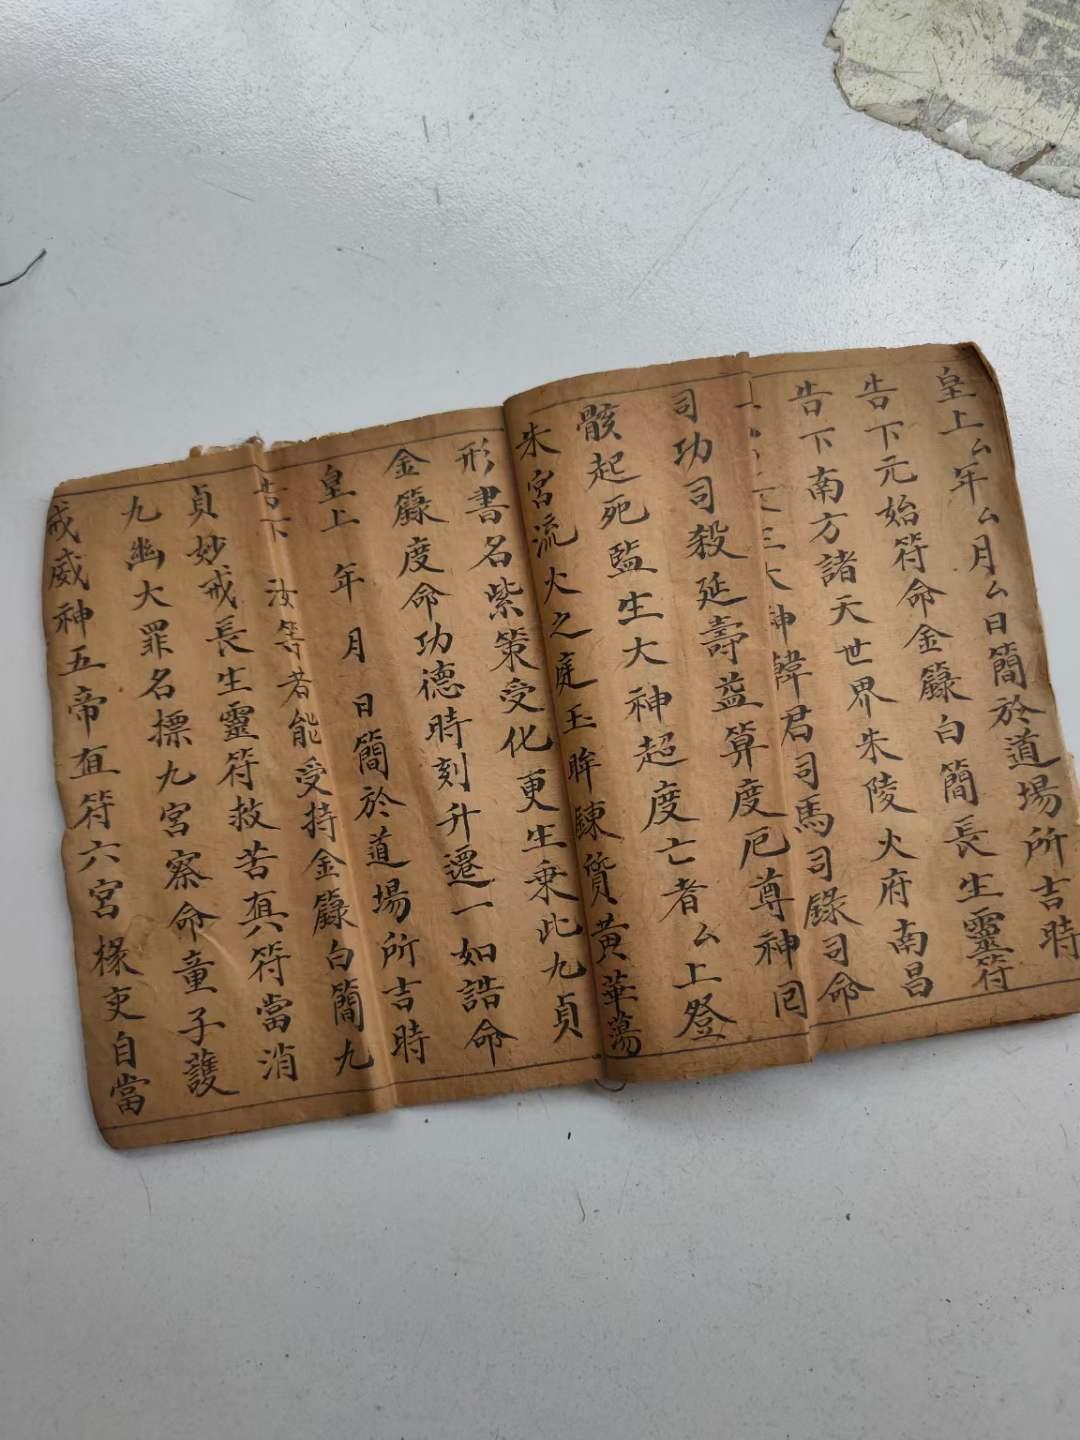 皇上厶年厶月厶日簡於道場所吉時
告下元始符命金籙白簡長生靈符
告下南方諸天世界朱陵火府南昌
大神韓君司馬司錄司命
司功司殺延壽益算度厄尊神囘
骸起死監生大神超度亡者厶上登
朱宮流火之庭玉眸鍊質黃華蕩
形書名紫策受化更生乗此九貞
金籙度命功德時刻升遷一如誥命
皇上 年 月 日簡於道場所吉時
告下 汝等若能受持金籙白簡九
貞妙戒長生靈符救苦真符當消
九幽大罪名摽九宮察命童子護
戒威神五帝直符六宮掾吏自當